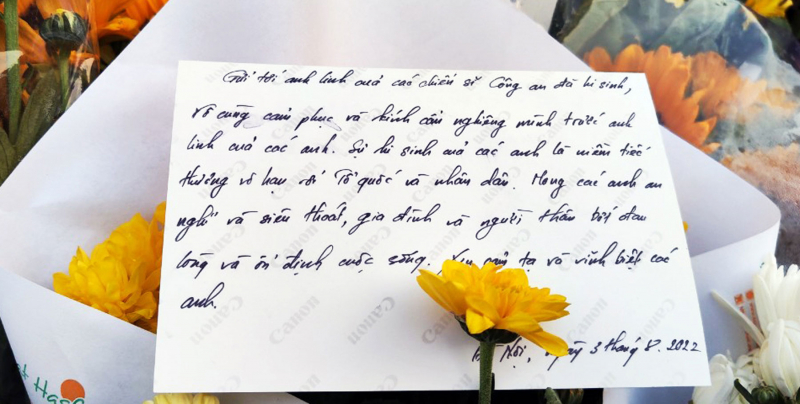 Gửi tới anh linh của các chiến sĩ Công an đã hi sinh,
Vô cùng cảm phục và kính cẩn nghiêng mình trước anh
linh của các anh. Sự hi sinh của các anh là niềm tiếc
thương vô hạn với Tổ quốc và nhân dân. Mong các anh an
nghỉ và siêu thoát, gia đình và người thân bớt đau
lòng và ổn định cuộc sống. Xin cảm tạ và vĩnh biệt các
anh.
Nội, ngày 3 tháng 8. 2022
Canon